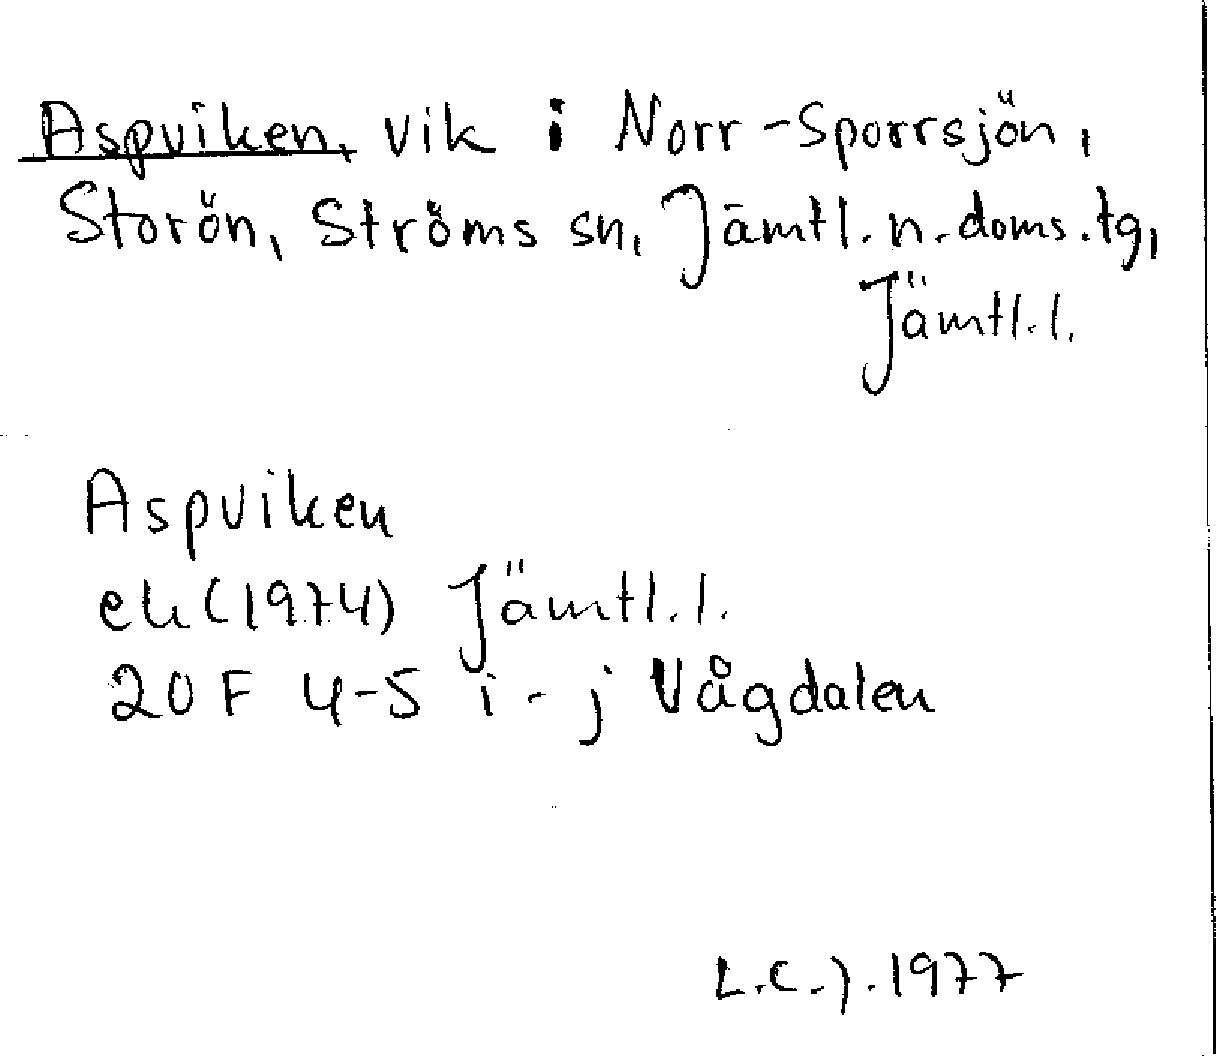 Aspviken, vik i Norr-Sporrsjön,
Storön, Ströms sn, Jämtl. n. doms. tg,
Jämtl. l.
Aspviken
ek (1974) Jämtl. l.
20 F 4-5 i - j Vågdalen
L.C.J. 1977